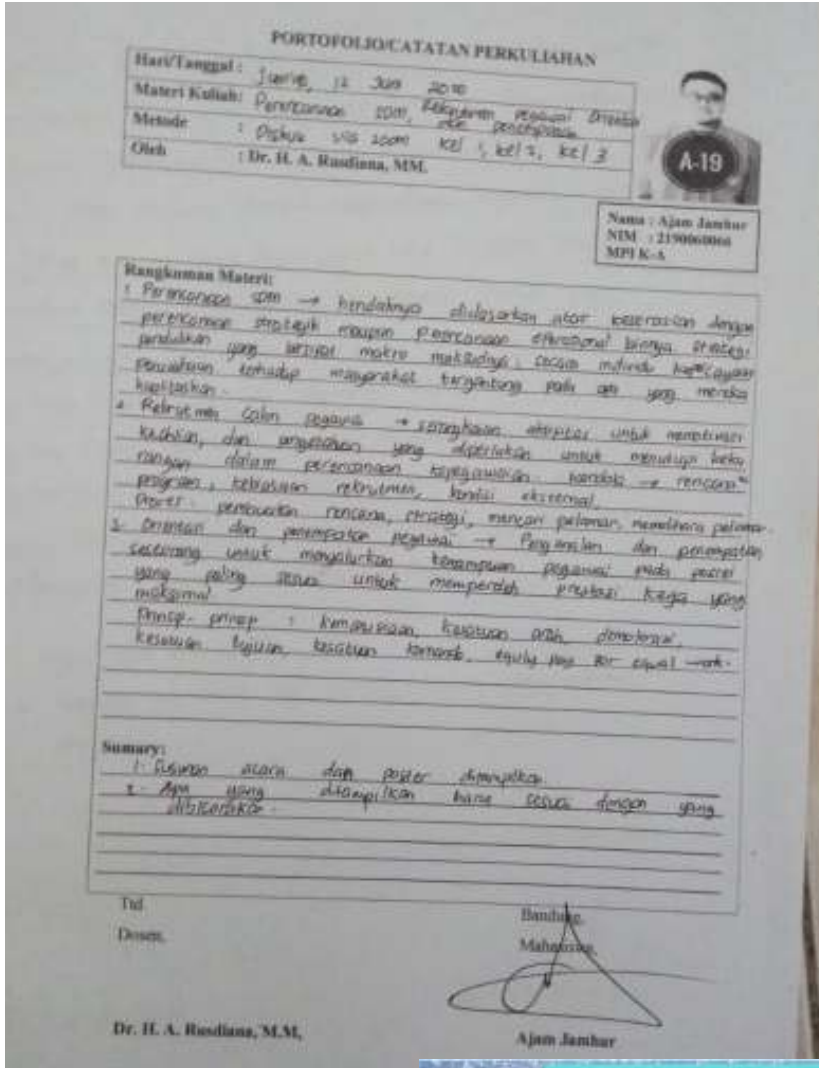 PORTOFOLIO/CATATAN PERKULIAHAN
Hari/Tanggal : 12 Juni
Materi Kuliah: Perencanaan SDM, pegawai
Metode : Diskusi via zoom kel 1, kel 2, kel 3
Oleh : Dr. H. A. Rusdiana, MM.
A-19
Nama : Ajam Jambur
NIM : 2190060066
MPI K-A
Rangkuman Materi:
1. Perencanaan SDM → hendaknya didasarkan atas keserasian dengan
perencanaan strategik maupun perencanaan operasional lainnya, strategi
pendidikan yang bersifat makro maksudnya, secara individu kepercayaan
perusahaan terhadap masyarakat tergantung pada apa yang mereka
2. Rekrutmen calon pegawai → serangkaian aktivitas untuk memotivasi
keahlian, dan pengetahuan yang diperlukan untuk menutupi keku
rangan dalam perencanaan kepegawaian. kendala → rencana"
program, kebiasaan rekrutmen, kondisi eksternal.
Proses : pembuatan rencana, strategi, mencari pelamar, memelihara pelamar.
3. Orientasi dan penempatan pegawai → Pengenalan dan penempatan
seseorang untuk menyalurkan kemampuan pegawai pada posisi
yang paling sesuai untuk memperoleh prestasi kerja yang
maksimal
Prinsip-prinsip : kemanusiaan, kesatuan arah, demokrasi,
kesatuan tujuan, kesatuan komando, equity pay for equal work.
Sumary:
1. Susunan acara dan poster ditampilkan
2. Apa yang ditampilkan harus sesuai dengan yang
dibicarakan.
Ttd
Bandung,
Dosen,
Mahasiswa,
Dr. H. A. Rusdiana, M.M,
Ajam Jambur